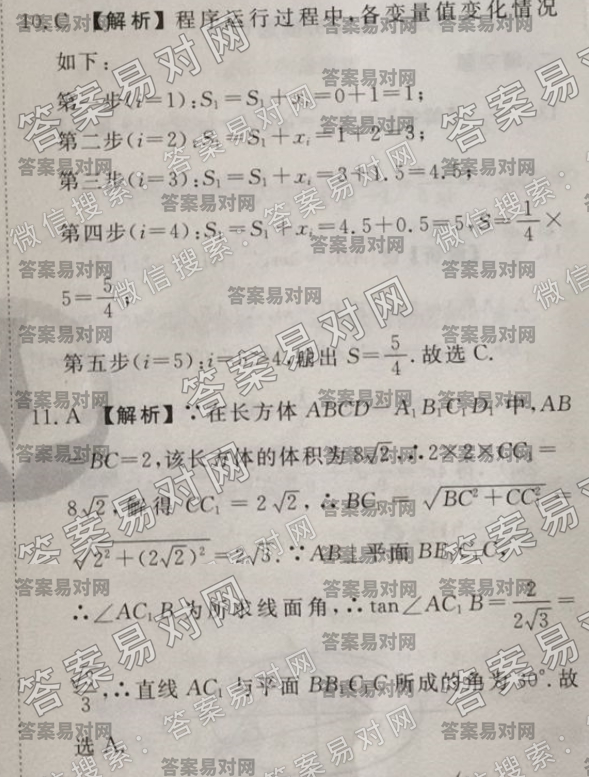 10.C 【解析】程序运行过程中,各变量值变化情况
如下:
第一步(i=1):S₁=S₁+xᵢ=0+1=1;
第二步(i=2):S₁=S₁+xᵢ=1+2=3;
第三步(i=3):S₁=S₁+xᵢ=3+1.5=4.5;
第四步(i=4):S₁=S₁+xᵢ=4.5+0.5=5,S=1/4×
5=5/4;
第五步(i=5):i=5>4,输出 S=5/4.故选 C.
11.A 【解析】∵在长方体 ABCD-A₁B₁C₁D₁ 中,AB
=BC=2,该长方体的体积为8√2,∴2×2×CC₁=
8√2,解得 CC₁=2√2,∴BC₁=√(BC²+CC₁²)=
√(2²+(2√2)²)=2√3.∵AB⊥平面 BB₁C₁C,
∴∠AC₁B 为所求线面角,∴tan∠AC₁B=2/(2√3)=
√3/3,∴直线 AC₁ 与平面 BB₁C₁C 所成的角为30°.故
选 A.
答案易对网
微信搜索:答案易对网